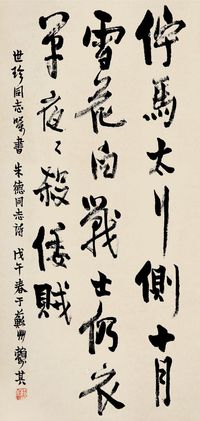 佇馬太行側十月
雪花白戰士仍衣
单夜々殺倭賊
世珍同志囑書 朱德同志詩 戊午春于蘇州 其